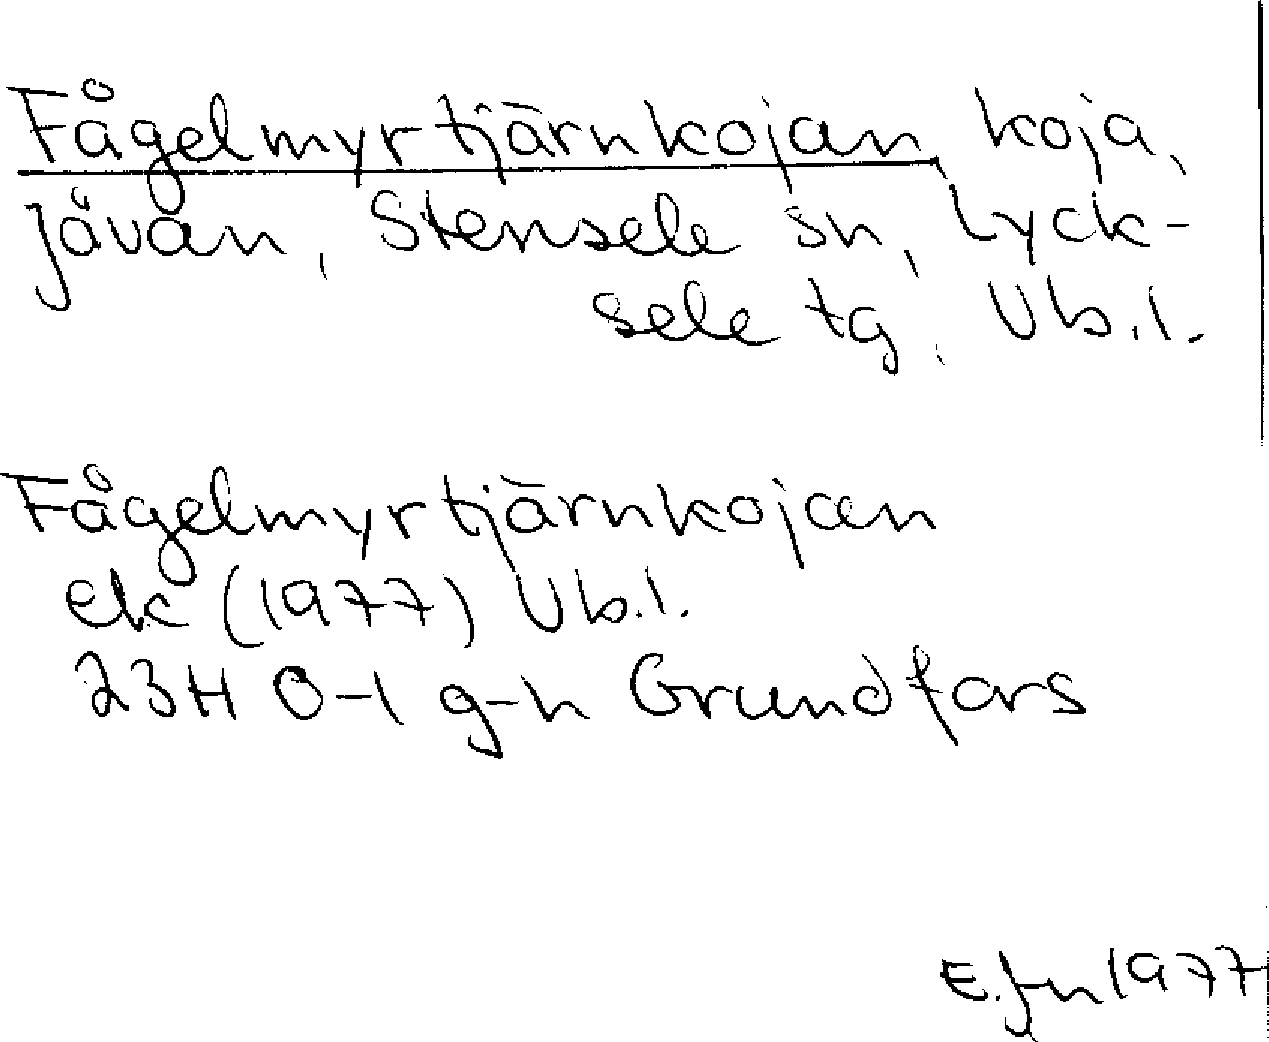 Fågelmyrtjärnkojan, koja,
Jåvan, Stensele sn, Lyck-
sele tg, Vb.l.
Fågelmyrtjärnkojan
ek (1977) Vb.l.
23H 0-1 g-h Grundfors
E. Jn 1977